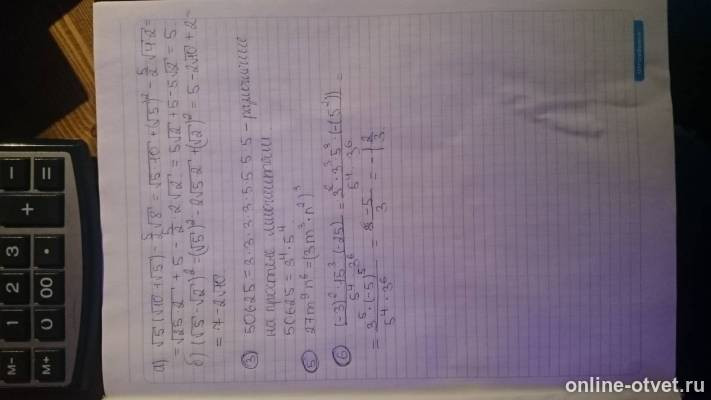 а) √5(√10+√5) - 5/2√8 = √5·10 + (√5)² - 5/2√4·2 =
= √25·2 + 5 - 5/2·2√2 = 5√2 + 5 - 5√2 = 5.
б) (√5-√2)² = (√5)² - 2√5·2 + (√2)² = 5 - 2√10 + 2 =
= 7 - 2√10
③ 50625 = 3·3·3·3·5·5·5·5 -
на простые множители
50625 = 3⁴·5⁴
⑤ 27m⁹n⁶ = (3m³·n²)³
⑥ (-3)²·15³·(-25) / 5⁴·3⁶ = 3²·3³·5³·(-(5²)) / 5⁴·3⁶ =
= 3⁵·(-5)⁵ / 5⁴·3⁶ = -5 / 3 = -1 2/3
М- 1 2 3 -
М+ 0 00 · + =
online-otvet.ru